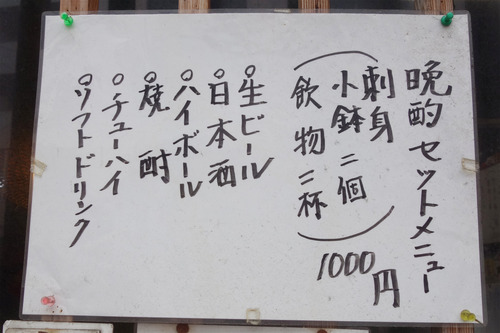 晩酌セットメニュー
刺身
小鉢二個
飲物二杯
1000円
○生ビール
○日本酒
○ハイボール
○焼酎
○チューハイ
○ソフトドリンク